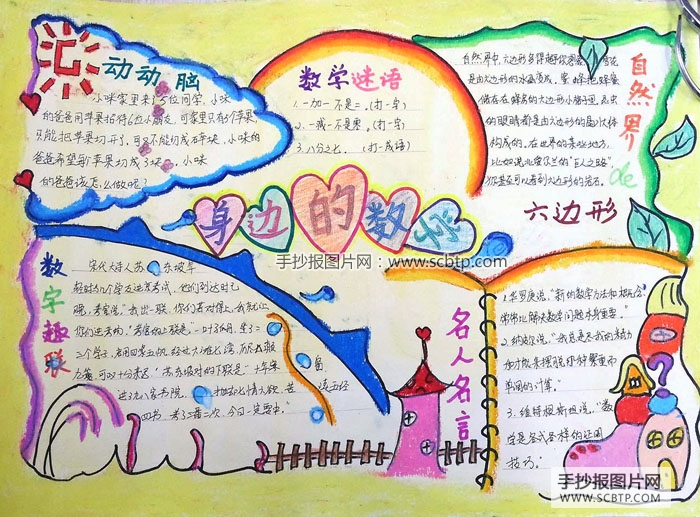 动动脑
小咪家里来了5位同学,小咪
的爸爸用苹果招待6位小朋友,可家里只有5个苹果,
只能把苹果切开了,可又不能切成碎块,小咪的
爸爸希望每个苹果切成3块,小咪
的爸爸该怎么做呢?
数学谜语
1.一加一不是二。(打一字)
2.一减一不是零。(打一字)
3.八分之七。(打一成语)
自然界
de
六边形
自然界中,六边形多得超乎你想象,雪花
是由六边形的冰晶
蜜蜂把蜂蜜
储存在蜂房的六边形小格子里,昆虫
的眼睛都是由六边形的晶状体
构成的。在世界的某些地方,
比如说北爱尔兰的“巨人之路”,
你甚至可以看到六边形的岩石。
身边的数学
手抄报图片网:www.scbtp.com
数字趣联
宋代大诗人苏东坡年
轻时与几个学友进京考试,他们到达时已
晚,考官说:“我出一联,你们若对得上,我就让
你们进考场。”考官的上联是:“一叶孤舟,坐二
三个学子,启用四桨五帆,经过六滩七湾,历尽八颠
九簸,可以十分来迟。”苏东坡对的下联是:“十年寒
窗,进九八家书院,抛却七情六欲,苦读五经
四书,考了三番二次,今日一定要中。”
名人名言
1.华罗庚说:“新的数学方法和概念,
常常比解决数学问题本身重要。”
2.纳皮尔说:“我总是尽我的精力
和才能来摆脱那种繁重而
单调的计算。”
3.维特根斯坦说:“数
学是各式各样的证明
技巧。”
手抄报图片网
WWW.SCBTP.COM